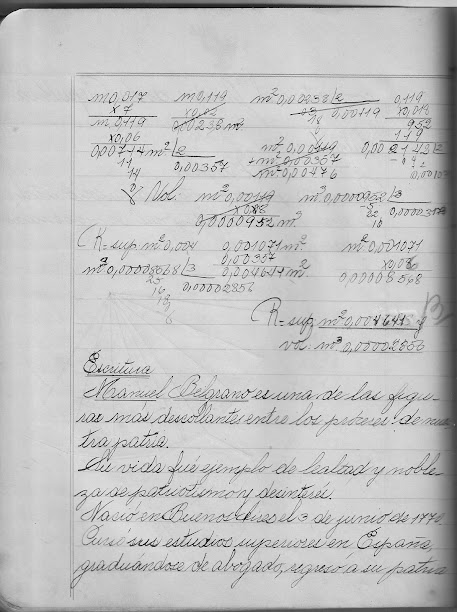 m 0,017 m 0,119 m² 0,00238 | 2 0,119
x 7 x0,02 03 0,00119 x0,018
m 0,119 0,00238 m² 18 952
x0,06 119
0,00714 m² | 2 m² 0,00119 0,002142 | 2
11 0,00357 + m² 0,00357
14 m² 0,00476
0 Vol: m² 0,00119 m³ 0,0000952 | 3
x 0,08
0,0000952 m³
R= sup m² 0,004 0,001071 m² m² 0,001071
0,00357
m³ 0,00008568 | 3 0,004641 m² 0,00008568
25 0,00002856
16
18
0
R= sup m² 0,004641 y
vol. m³ 0,00002856
Escritura
Manuel Belgrano es una de las figu-
ras más descollantes entre los próceres de nues
tra patria.
Su vida fué ejemplo de lealtad y noble-
za de patriotismo y desinterés.
Nació en Buenos Aires el 3 de junio de 1770.
Cursó sus estudios superiores en España,
graduándose de abogado, regreso a su patria